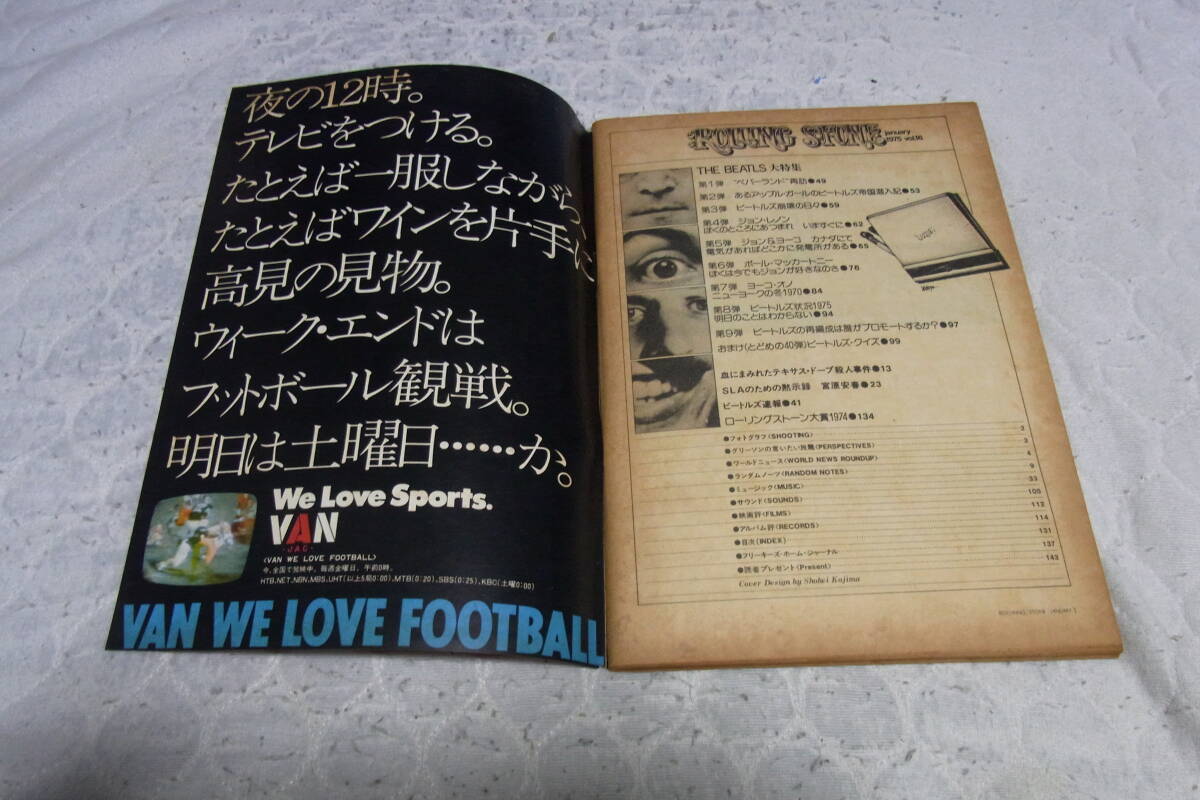 夜の12時。
テレビをつける。
たとえば一服しながら、
たとえばワインを片手に
高見の見物。
ウィーク・エンドは
フットボール観戦。
明日は土曜日……か。
We Love Sports.
VAN
・JAC・
〈VAN WE LOVE FOOTBALL〉
今、全国で放映中。毎週金曜日、午前0時。
HTB.NET.NBN.MBS.UHT(以上5局0:00).MTB(0:20).SBS(0:25).KBC(土曜0:00)
VAN WE LOVE FOOTBALL
ROLLING STONE
january
1975 vol.16
THE BEATLS 大特集
第1弾 “ペパーランド”再訪●49
第2弾 あるアップル・ガールのビートルズ帝国潜入記●53
第3弾 ビートルズ崩壊の日々●59
第4弾 ジョン・レノン
ぼくのところにあつまれ いますぐに●62
第5弾 ジョン&ヨーコ カナダにて
電気があればどこかに発電所がある●65
第6弾 ポール・マッカートニー
ぼくは今でもジョンが好きなのさ●76
第7弾 ヨーコ・オノ
ニューヨークの冬1970●84
第8弾 ビートルズ状況1975
明日のことはわからない●94
第9弾 ビートルズの再編成は誰がプロモートするか?●97
おまけ(とどめの40弾)ビートルズ・クイズ●99
血にまみれたテキサス・ドープ殺人事件●13
SLAのための黙示録 宮原安春●23
ビートルズ速報●41
ローリングストーン大賞1974●134
●フォトグラフ(SHOOTING) 2
●グリーソンの言いたい放題(PERSPECTIVES) 3
●ワールドニュース(WORLD NEWS ROUNDUP) 4
●ランダムノーツ(RANDOM NOTES) 9
●ミュージック(MUSIC) 33
●サウンド(SOUNDS) 105
●映画評(FILMS) 112
●アルバム評(RECORDS) 114
●目次(INDEX) 131
●フリーキーズ・ホーム・ジャーナル 137
●読者プレゼント(Present) 143
Cover Design by Shohei Kajima